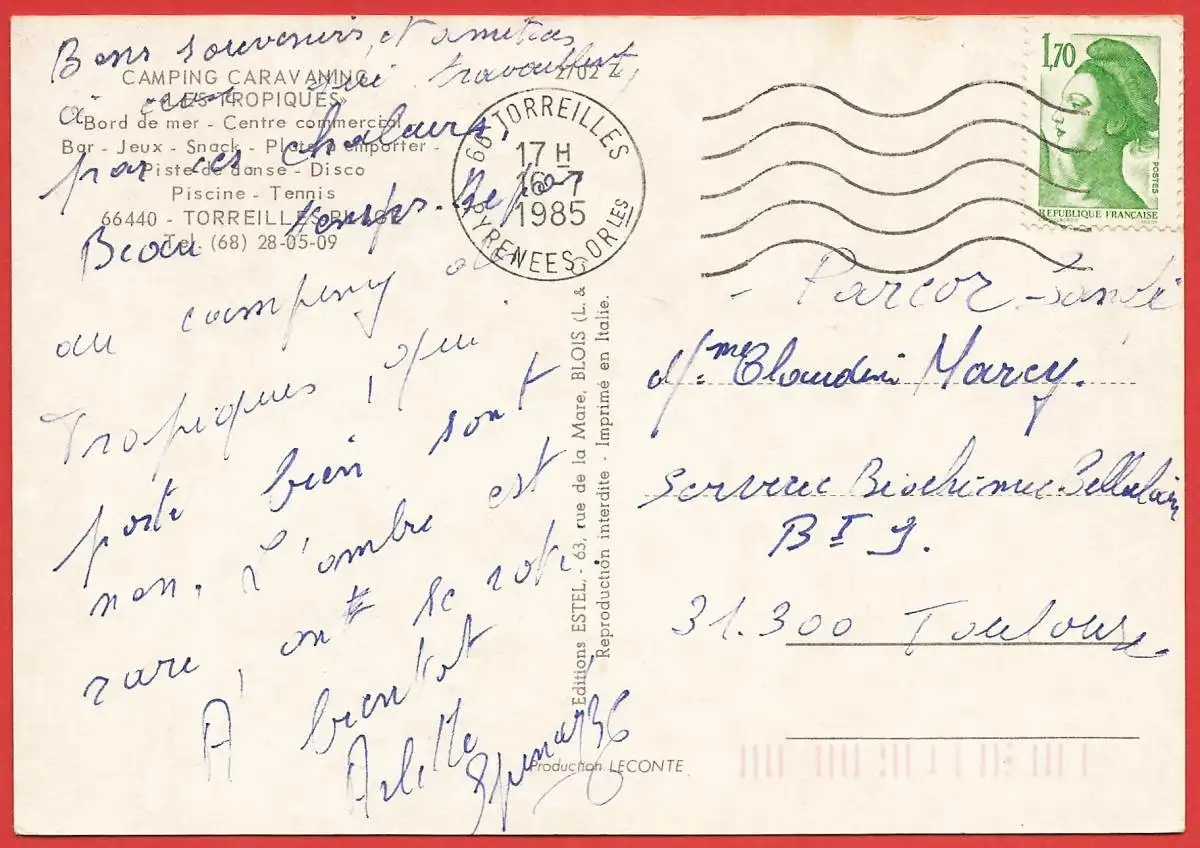 Bons souvenirs et amitiés
à ceux qui travaillent,
par ces chaleurs,
Beau temps. Repos
au camping des
Tropiques, qui
porte bien sont
nom. L'ombre est
rare, ont se roti.
A bientot
Arlette
CAMPING CARAVANING
"LES TROPIQUES"
Bord de mer - Centre commercial
Bar - Jeux - Snack - Plats à emporter -
Piste de danse - Disco
Piscine - Tennis
66440 - TORREILLES PLAGE
Tel. (68) 28-05-09
2702 Z
66 TORREILLES
17 H
16 - 7
1985
PYRENEES ORIES
Editions ESTEL, - 63, rue de la Mare, BLOIS (L. &
Reproduction interdite - Imprimé en Italie.
Production LECONTE
1,70
POSTES
REPUBLIQUE FRANÇAISE
- Parcor - Santé
Mme Claudine Marcy.
Service Biochimie
B I 3.
31.300 Toulouse